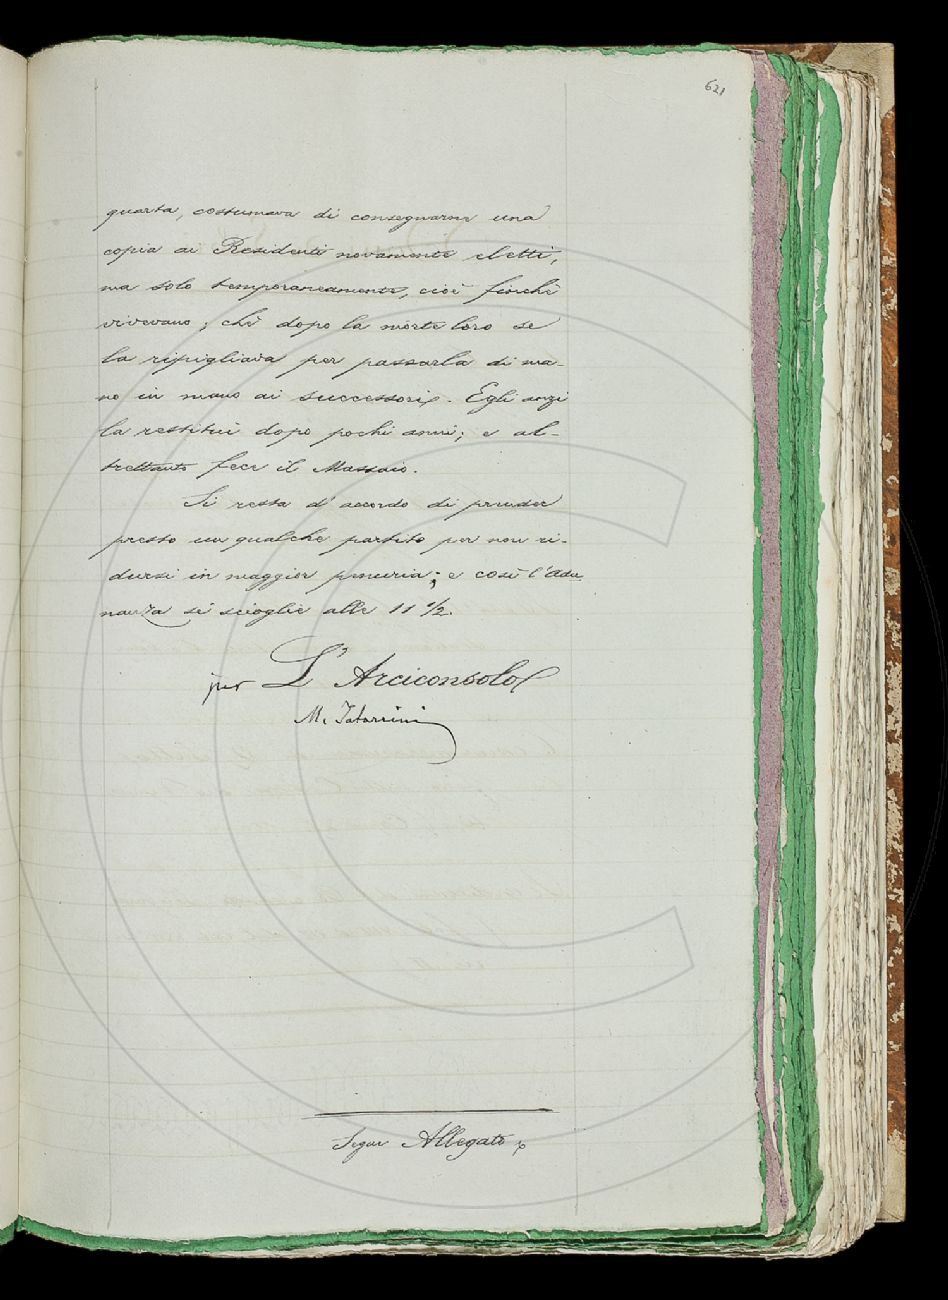 621
quarta, costumava di consegnarne una
copia ai Residenti novamente eletti,
ma solo temporaneamente, cioè finchè
vivevano; chè dopo la morte loro se
la ripigliava per passarla di ma-
no in mano ai successori. Egli anzi
la restituì dopo pochi anni; e al-
trettanto fece il Massaio.
Si resta d'accordo di prender
presto un qualche partito per non ri-
dursi in maggior penuria; e così l'adu
nanza si scioglie alle 11 1/2.
per L'Arciconsolo
M. Tabarrini
Segue Allegato